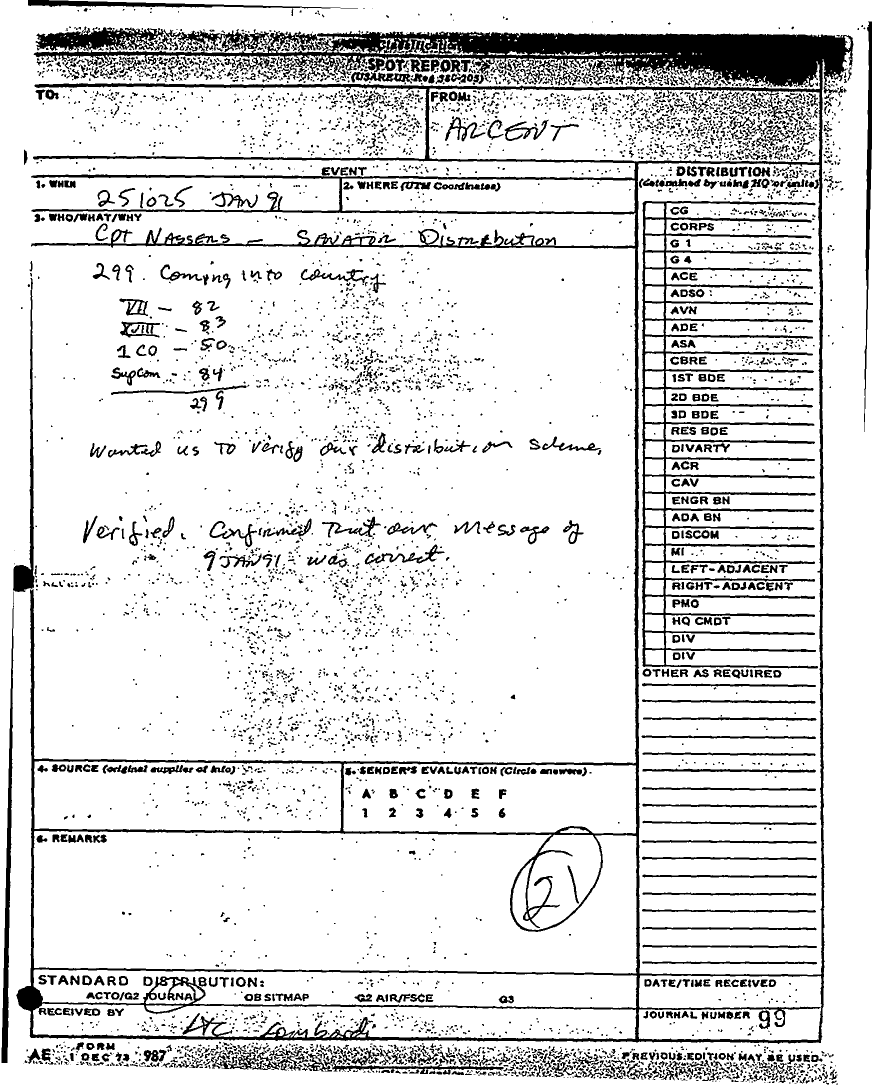 SPOT REPORT
(USAREUR Reg 380-205)
TO:
FROM:
ARCENT
EVENT
1. WHEN
251025 JAN 91
2. WHERE (UTM Coordinates)
3. WHO/WHAT/WHY
CPT NASSERS - SANATOR Distribution
299. Coming into country
VII - 82
XVIII - 83
1 CO - 50
SupCom - 84
299
Wanted us to verify our distribution scheme.
Verified. Confirmed that our message of
9 JAN 91 was correct.
4. SOURCE (original supplier of info)
5. SENDER'S EVALUATION (Circle answers)
A B C D E F
1 2 3 4 5 6
6. REMARKS
21
STANDARD DISTRIBUTION:
ACTO/G2 JOURNAL OB SITMAP G2 AIR/FSCE G3
RECEIVED BY
LTC Lombardi
DISTRIBUTION
(determined by using HQ or units)
CG
CORPS
G 1
G 4
ACE
ADSO
AVN
ADE
ASA
CBRE
1ST BDE
2D BDE
3D BDE
RES BDE
DIVARTY
ACR
CAV
ENGR BN
ADA BN
DISCOM
MI
LEFT-ADJACENT
RIGHT-ADJACENT
PMO
HQ CMDT
DIV
DIV
OTHER AS REQUIRED
DATE/TIME RECEIVED
JOURNAL NUMBER 99
AE FORM 1 DEC 73 987
PREVIOUS EDITION MAY BE USED.